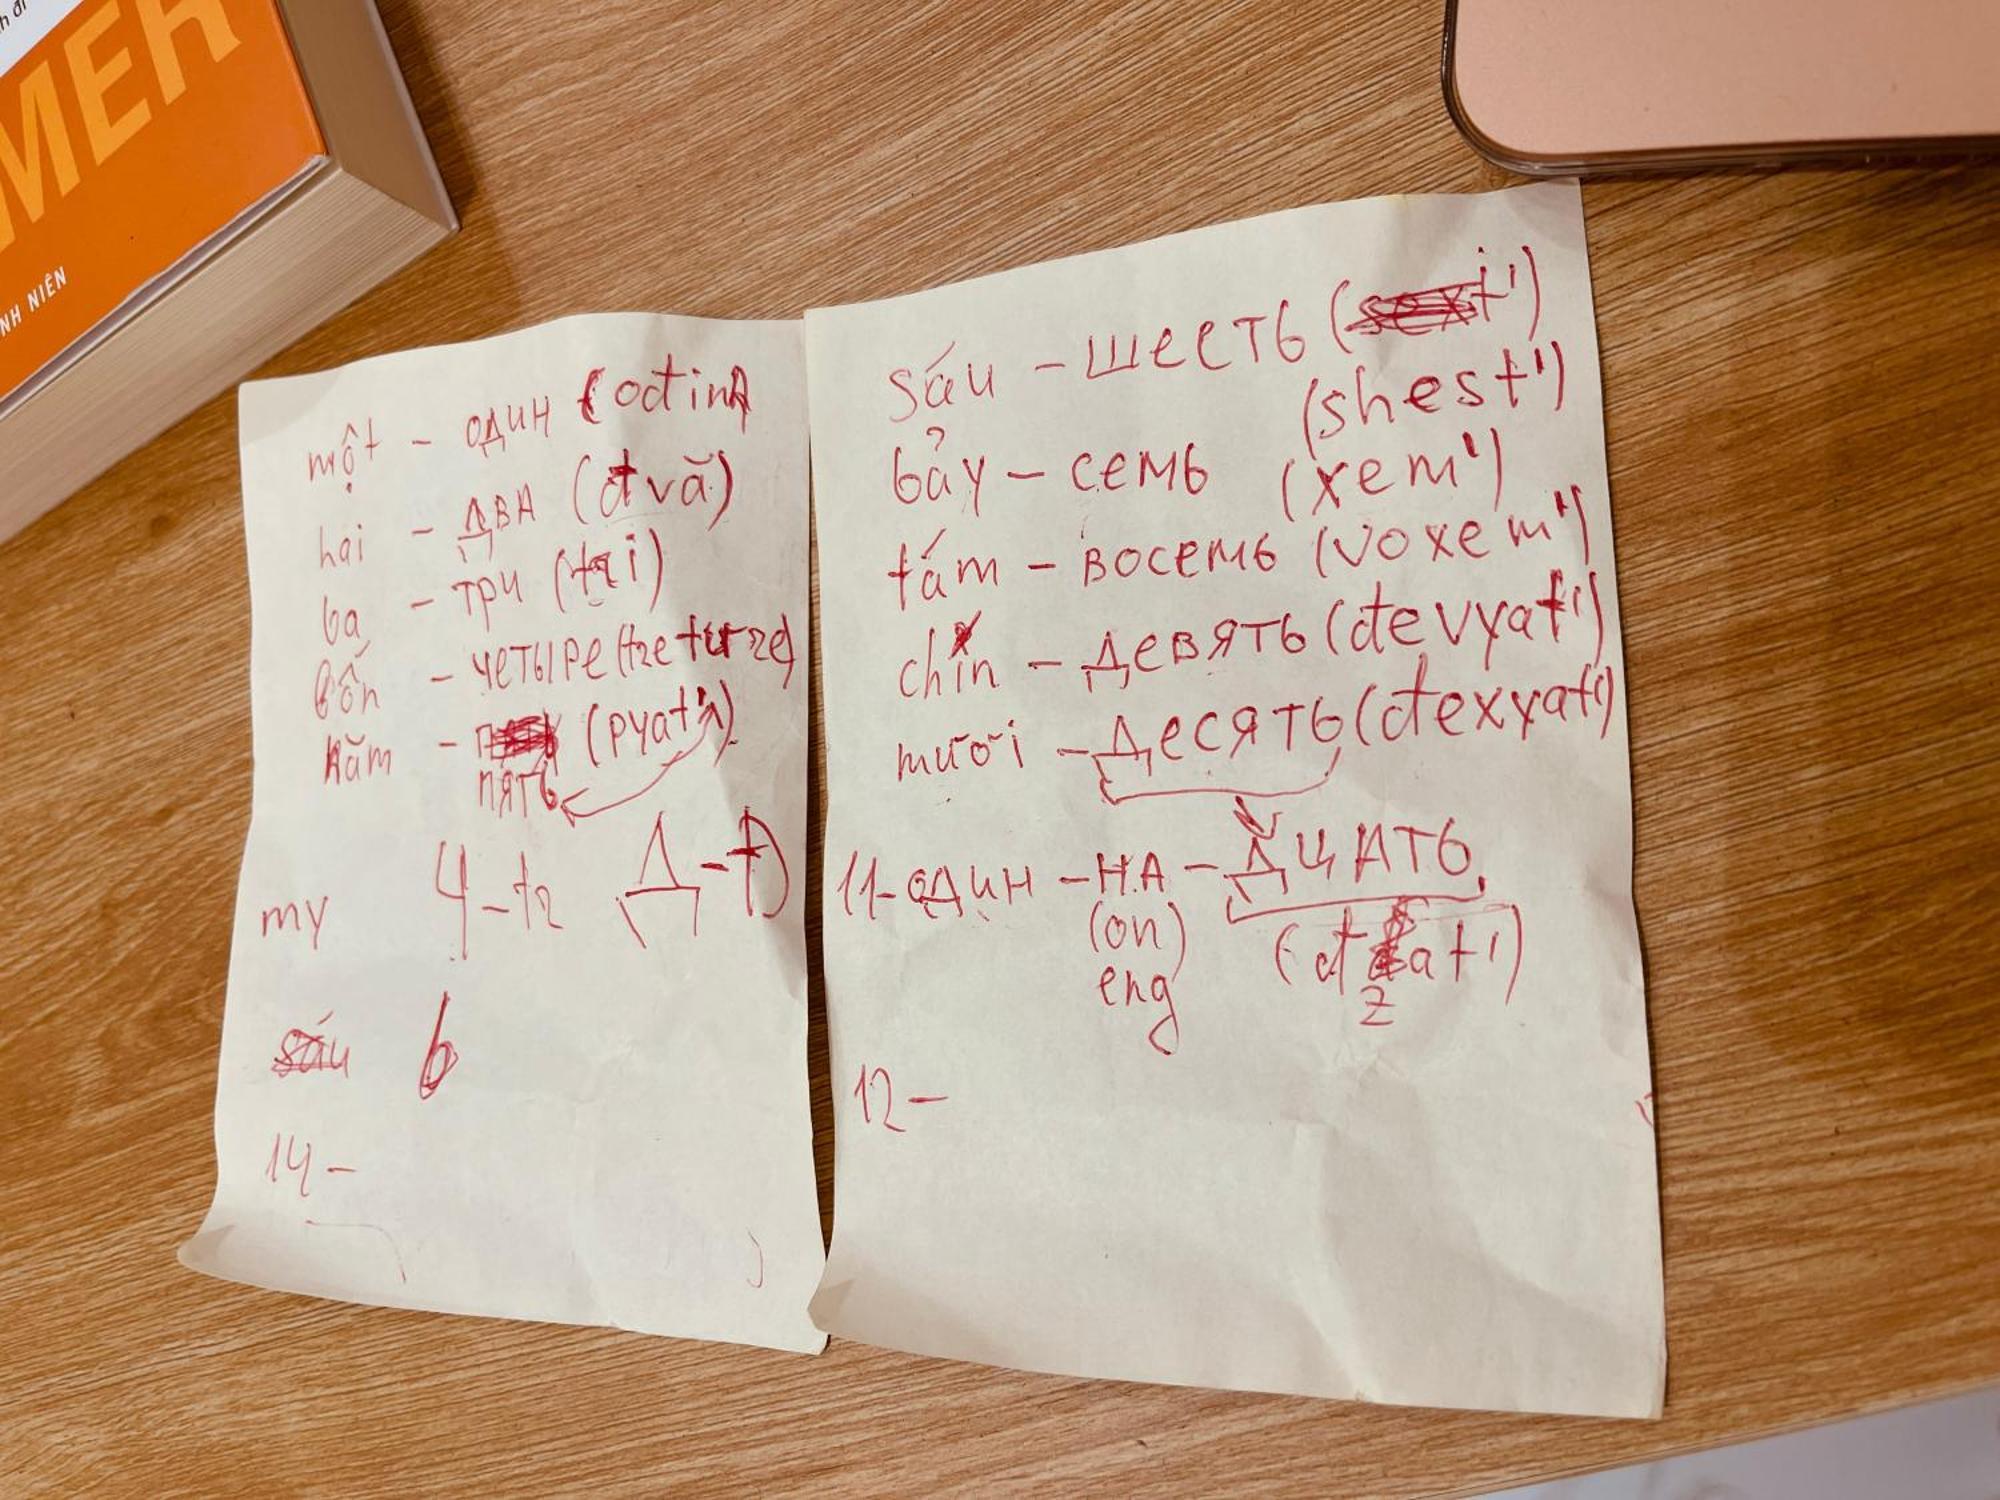 MER
NH NIÊN
một - один (ođinA
hai - ДВА (đvă)
ba - три (tri)
bốn - четыре (tre turze)
năm - (pyat'ı)
пять
my ч-tr Д-Đ
sáu 6
14-
sáu - шесть (sext')
(shest')
bảy - семь (xem')
tám - восемь (voxem')
chín - девять (đevyat')
mười - десять (đexyat')
11-один - НА - ДЦАТЬ
(on) (đzat')
eng
12-